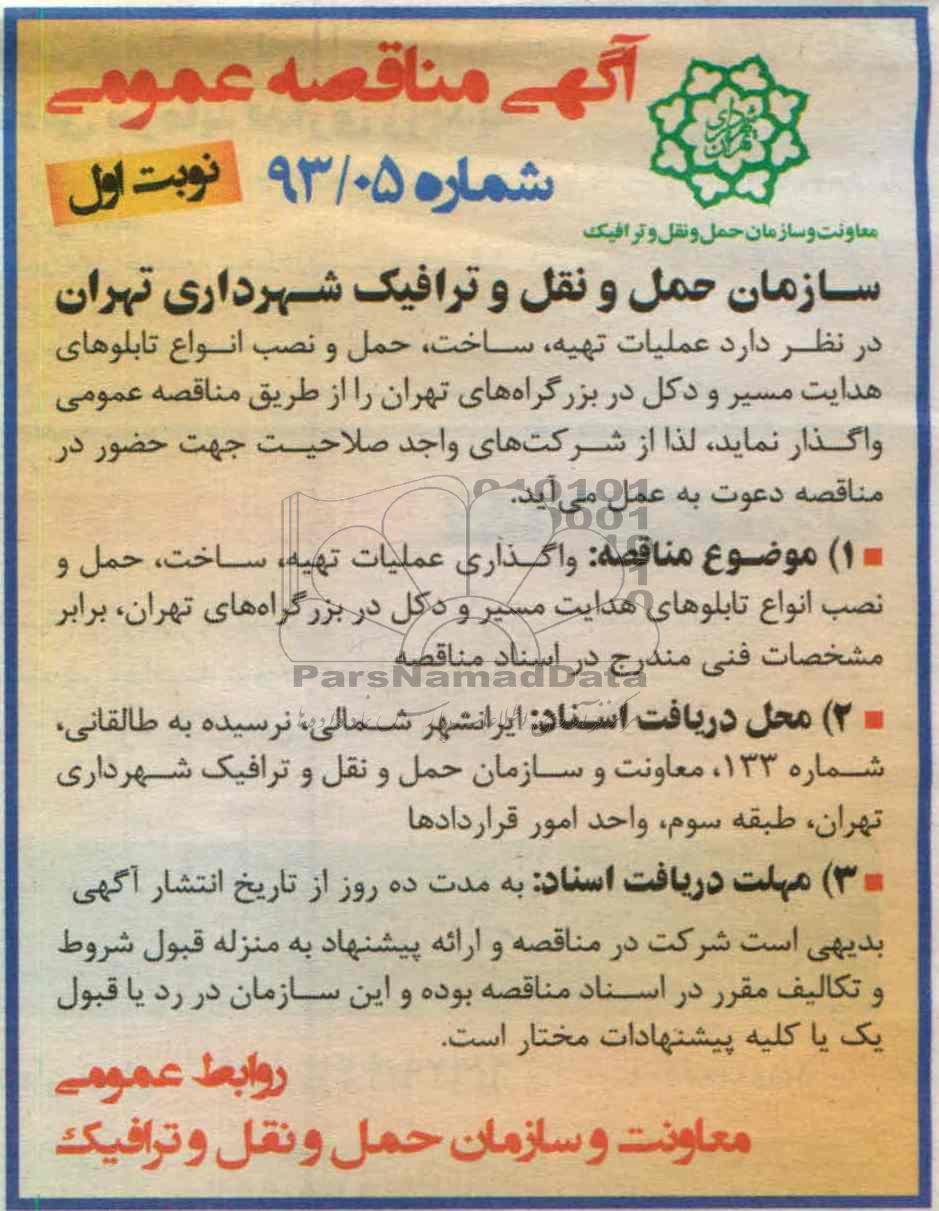 آگهی مناقصه عمومی
شماره ۹۳/۰۵
نوبت اول
شهرداری تهران
معاونت و سازمان حمل و نقل و ترافیک
سازمان حمل و نقل و ترافیک شهرداری تهران
در نظر دارد عملیات تهیه، ساخت، حمل و نصب انواع تابلوهای
هدایت مسیر و دکل در بزرگراه‌های تهران را از طریق مناقصه عمومی
واگذار نماید، لذا از شرکت‌های واجد صلاحیت جهت حضور در
مناقصه دعوت به عمل می‌آید.
۱) موضوع مناقصه: واگذاری عملیات تهیه، ساخت، حمل و
نصب انواع تابلوهای هدایت مسیر و دکل در بزرگراه‌های تهران، برابر
مشخصات فنی مندرج در اسناد مناقصه
ParsNamadData
۲) محل دریافت اسناد: ایرانشهر شمالی، نرسیده به طالقانی،
شماره ۱۳۳، معاونت و سازمان حمل و نقل و ترافیک شهرداری
تهران، طبقه سوم، واحد امور قراردادها
۳) مهلت دریافت اسناد: به مدت ده روز از تاریخ انتشار آگهی
بدیهی است شرکت در مناقصه و ارائه پیشنهاد به منزله قبول شروط
و تکالیف مقرر در اسناد مناقصه بوده و این سازمان در رد یا قبول
یک یا کلیه پیشنهادات مختار است.
روابط عمومی
معاونت و سازمان حمل و نقل و ترافیک